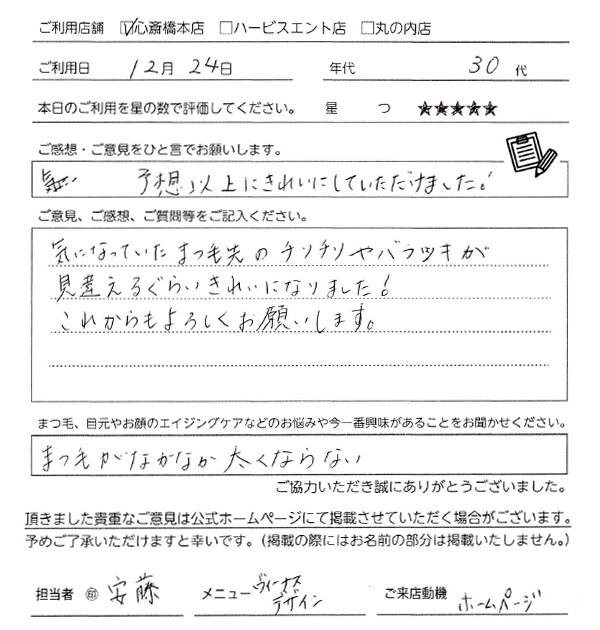 ご利用店舗 ☑心斎橋本店 □ハービスエント店 □丸の内店
ご利用日 12月 24日 年代 30代
本日のご利用を星の数で評価してください。 星 つ ★★★★★
ご感想・ご意見をひと言でお願いします。
予想以上にきれいにしていただけました!
ご意見、ご感想、ご質問等をご記入ください。
気になっていたまつ毛先のチリチリやバラツキが
見違えるぐらいきれいになりました!
これからもよろしくお願いします。
まつ毛、目元やお顔のエイジングケアなどのお悩みや今一番興味があることをお聞かせください。
まつ毛がなかなか太くならない
ご協力いただき誠にありがとうございました。
頂きました貴重なご意見は公式ホームページにて掲載させていただく場合がございます。
予めご了承いただけますと幸いです。(掲載の際にはお名前の部分は掲載いたしません。)
担当者 ㊞ 安藤 メニュー ヴィーナスデザイン ご来店動機 ホームページ